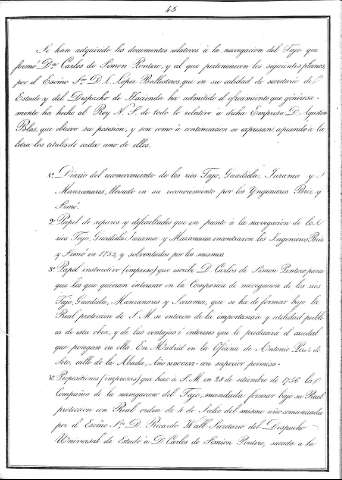 45
Se han adquirido los documentos relativos à la navegacion del Tajo que
formó Dn. Carlos de Simon Pontero, y al que pertenecieron los siguientes planos,
por el Escmo Sr. D. L. Lopez Ballesteros, que en su calidad de secretario de
Estado y del Despacho de Hacienda ha admitido el ofrecimiento que generosa-
mente ha hecho al Rey N. S. de todo lo relativo a dicha Empresa D. Agustin
Blas, que obtuvo su posesion, y son como à continuacion se espresan copiando a la
letra los titulos de cada uno de ellos.
1º Diario del reconocimiento de los rios Tajo, Guadiela, Jarama y
Manzanares, llevado en su reconocimiento por los Yngenieros Briz y
Simó.
2º Papel de reparos y dificultades que en punto a la navegacion de los
rios Tajo, Guadiela, Jarama y Manzanares encontraron los Yngenieros Briz
y Simó en 1755, y solventados por los mismos
3º Papel instructivo (impreso) que escribe D. Carlos de Simon Pontero para
que los que quieran interesar en la Compañia de navegacion de los rios
Tajo, Guadiela, Manzanares y Jarama, que se ha de formar bajo la
Real proteccion de S. M. se enteren de la importancia y utilidad publi-
ca de esta obra, y de las ventajas è intereses que le producirá el caudal
que pongan en ella. En Madrid en la Oficina de Antonio Perez de
Soto, calle de la Abada, Año con superior permiso.
3º Proposiciones (impresas) que hace à S. M. en 28 de setiembre de 1756 la
Compañia de la navegacion del Tajo, mandada formar bajo su Real
proteccion con Real orden de 4 de Julio del mismo año comunicada
por el Escmo Sr. D. Ricardo Wall Secretario del Despacho
Universal de Estado à D. Carlos de Simon Pontero, sacada a la